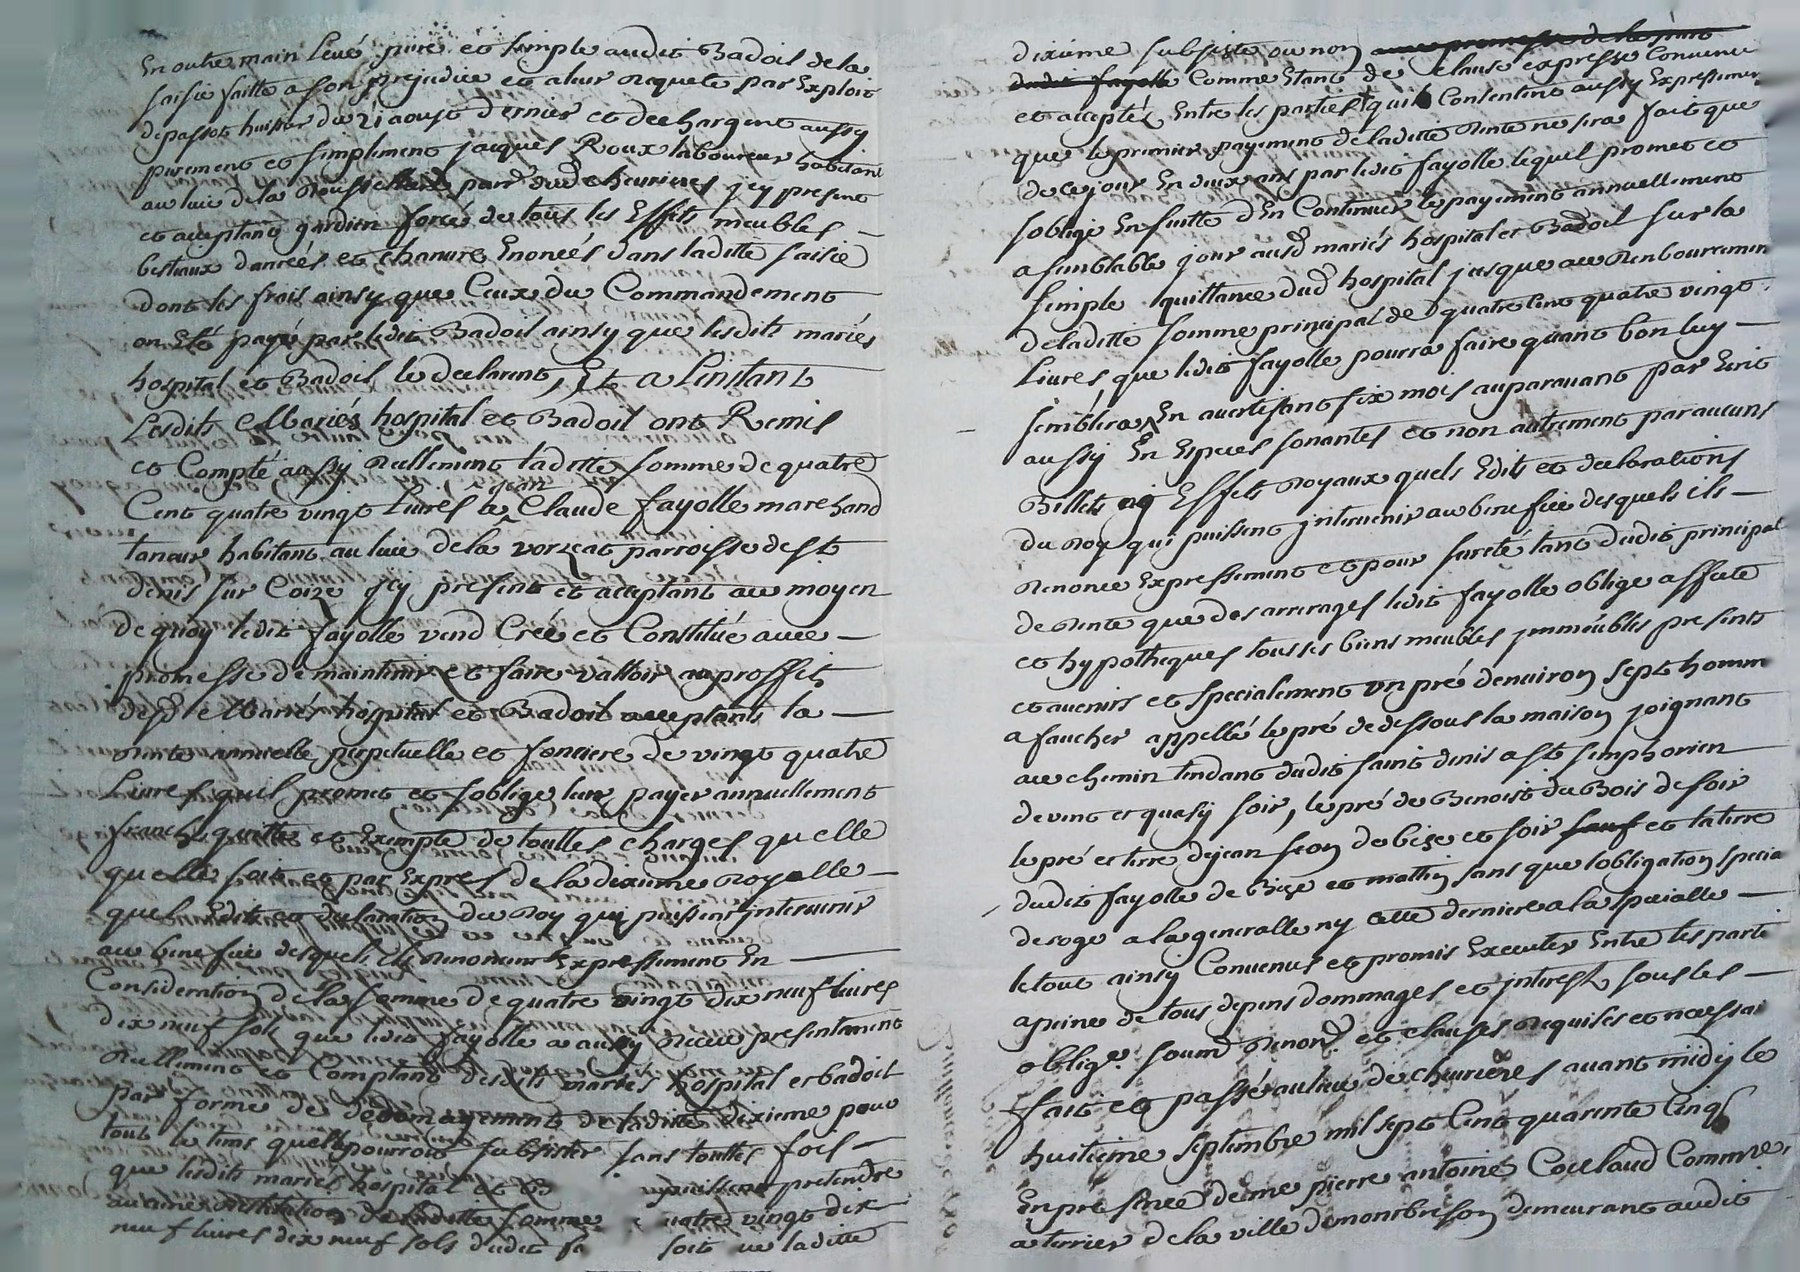 En outre main Levé pure et simple audit Badoil de la
saisie faitte a son prejudice et a leur Requete par Exploit
de passot huissier du 21 aoust dernier et dechargent aussy
purement et simplement jacques Roux laboureur habitant
au lieu de la parr. dud. cheurieres jcy present
et acceptant gardien forcé de tous les Effets meubles
bestiaux danrées et chanvre Enoncés dans laditte saisie
dont les frais ainsy que Ceux du Commandement
on Eté payé par ledit Badoil ainsy que lesdits mariés
hospital et Badoil le declarent, Et a Linstant
Lesdits Mariés hospital et Badoil ont Remis
et Compté aussy Reellement laditte somme de quatre
Cent quatre vingt Livres a Claude fayolle marchand
taneur habitant au lieu de la vorzeat parroisse de st
denis sur Coize jcy present et acceptant au moyen
de quoy ledit fayolle vend Créé et Constitué avec
promesse de maintenir et faire valloir au proffit
desd. Mariés hospital et Badoil acceptants la
rente annuelle perpetuelle et fonciere de vingt quatre
Livres quil promet et soblige leur payer annuellement
franche quitte et Exempte de touttes charges quelle
quelle soit et par Expres de la dixieme Royalle
quels Edits et declaration du Roy qui puissent jntervenir
au benefice desquels ils Renoncent Expressement En
Consideration de la somme de quatre vingt dix neuf livres
dix neuf sols que ledit fayolle a aussy Receu presentement
Reellement et Comptant desdits mariés hospital et badoil
par forme de dedomagement de laditte dixieme pour
tout le tems quelle pourroit subsister sans touttes fois
que lesdits mariés hospital et B puissent pretendre
aucune restitution de laditte somme quatre vingt dix
neuf livres dix neuf sols dudit fa soit que laditte
dixieme subsiste ou non
dudit fayolle Comme Etant de clause expresse Convenu
et accepté Entre les parties quil Consentent aussy Expressement
que le premier payement de laditte Rente ne sera fait que
de ce jour En deux ans par ledit fayolle lequel promet et
soblige En suitte dEn Continuer le payement annuellement
a semblable jour ausd. mariés hospital et Badoil sur la
simple quittance dud. hospital jusque au Rembourcement
de laditte somme principal de quatre Cent quatre vingt
Livres, que ledit fayolle pourra faire quant bon luy
semblera En avertissant six mois auparavant par Ecrit
aussy En Especes sonantes et non autrement par aucuns
Billets ny Effets Royaux quels Edits et declarations
du Roy qui puissent jntervenir au benefice desquels ils
Renonce Expressement et pour sureté tant dudit principal
de Rente que des arrerages ledit fayolle oblige affecte
et hypotheques tous ses biens meubles jmmeubles presents
et avenirs et specialement un pré denviron sept homme
a faucher appellé le pré de dessous la maison joignant
au chemin tendant dudit saint denis a st simphorien
de vent et quasy soir, le pré de Benoist du Bois de soir
le pré et terre de jean de bize et soir sauf et la terre
dudit fayolle de Bize et mattin sans que lobligation specia
deroge a la generalle ny cette derniere a la specialle
le tout ainsy Convenus et promis Executer Entre les parti
a peine de tous depens dommages et jnterest sous les
oblige. soum. Renon. et clauses Requises et necessai
fait et passé au lieu de cheurieres avant midy le
huitieme septembre mil sept Cent quarente Cinq
En presence de me pierre antoine Couland Commre.
a terrier de la ville de montbrison demeurant audit